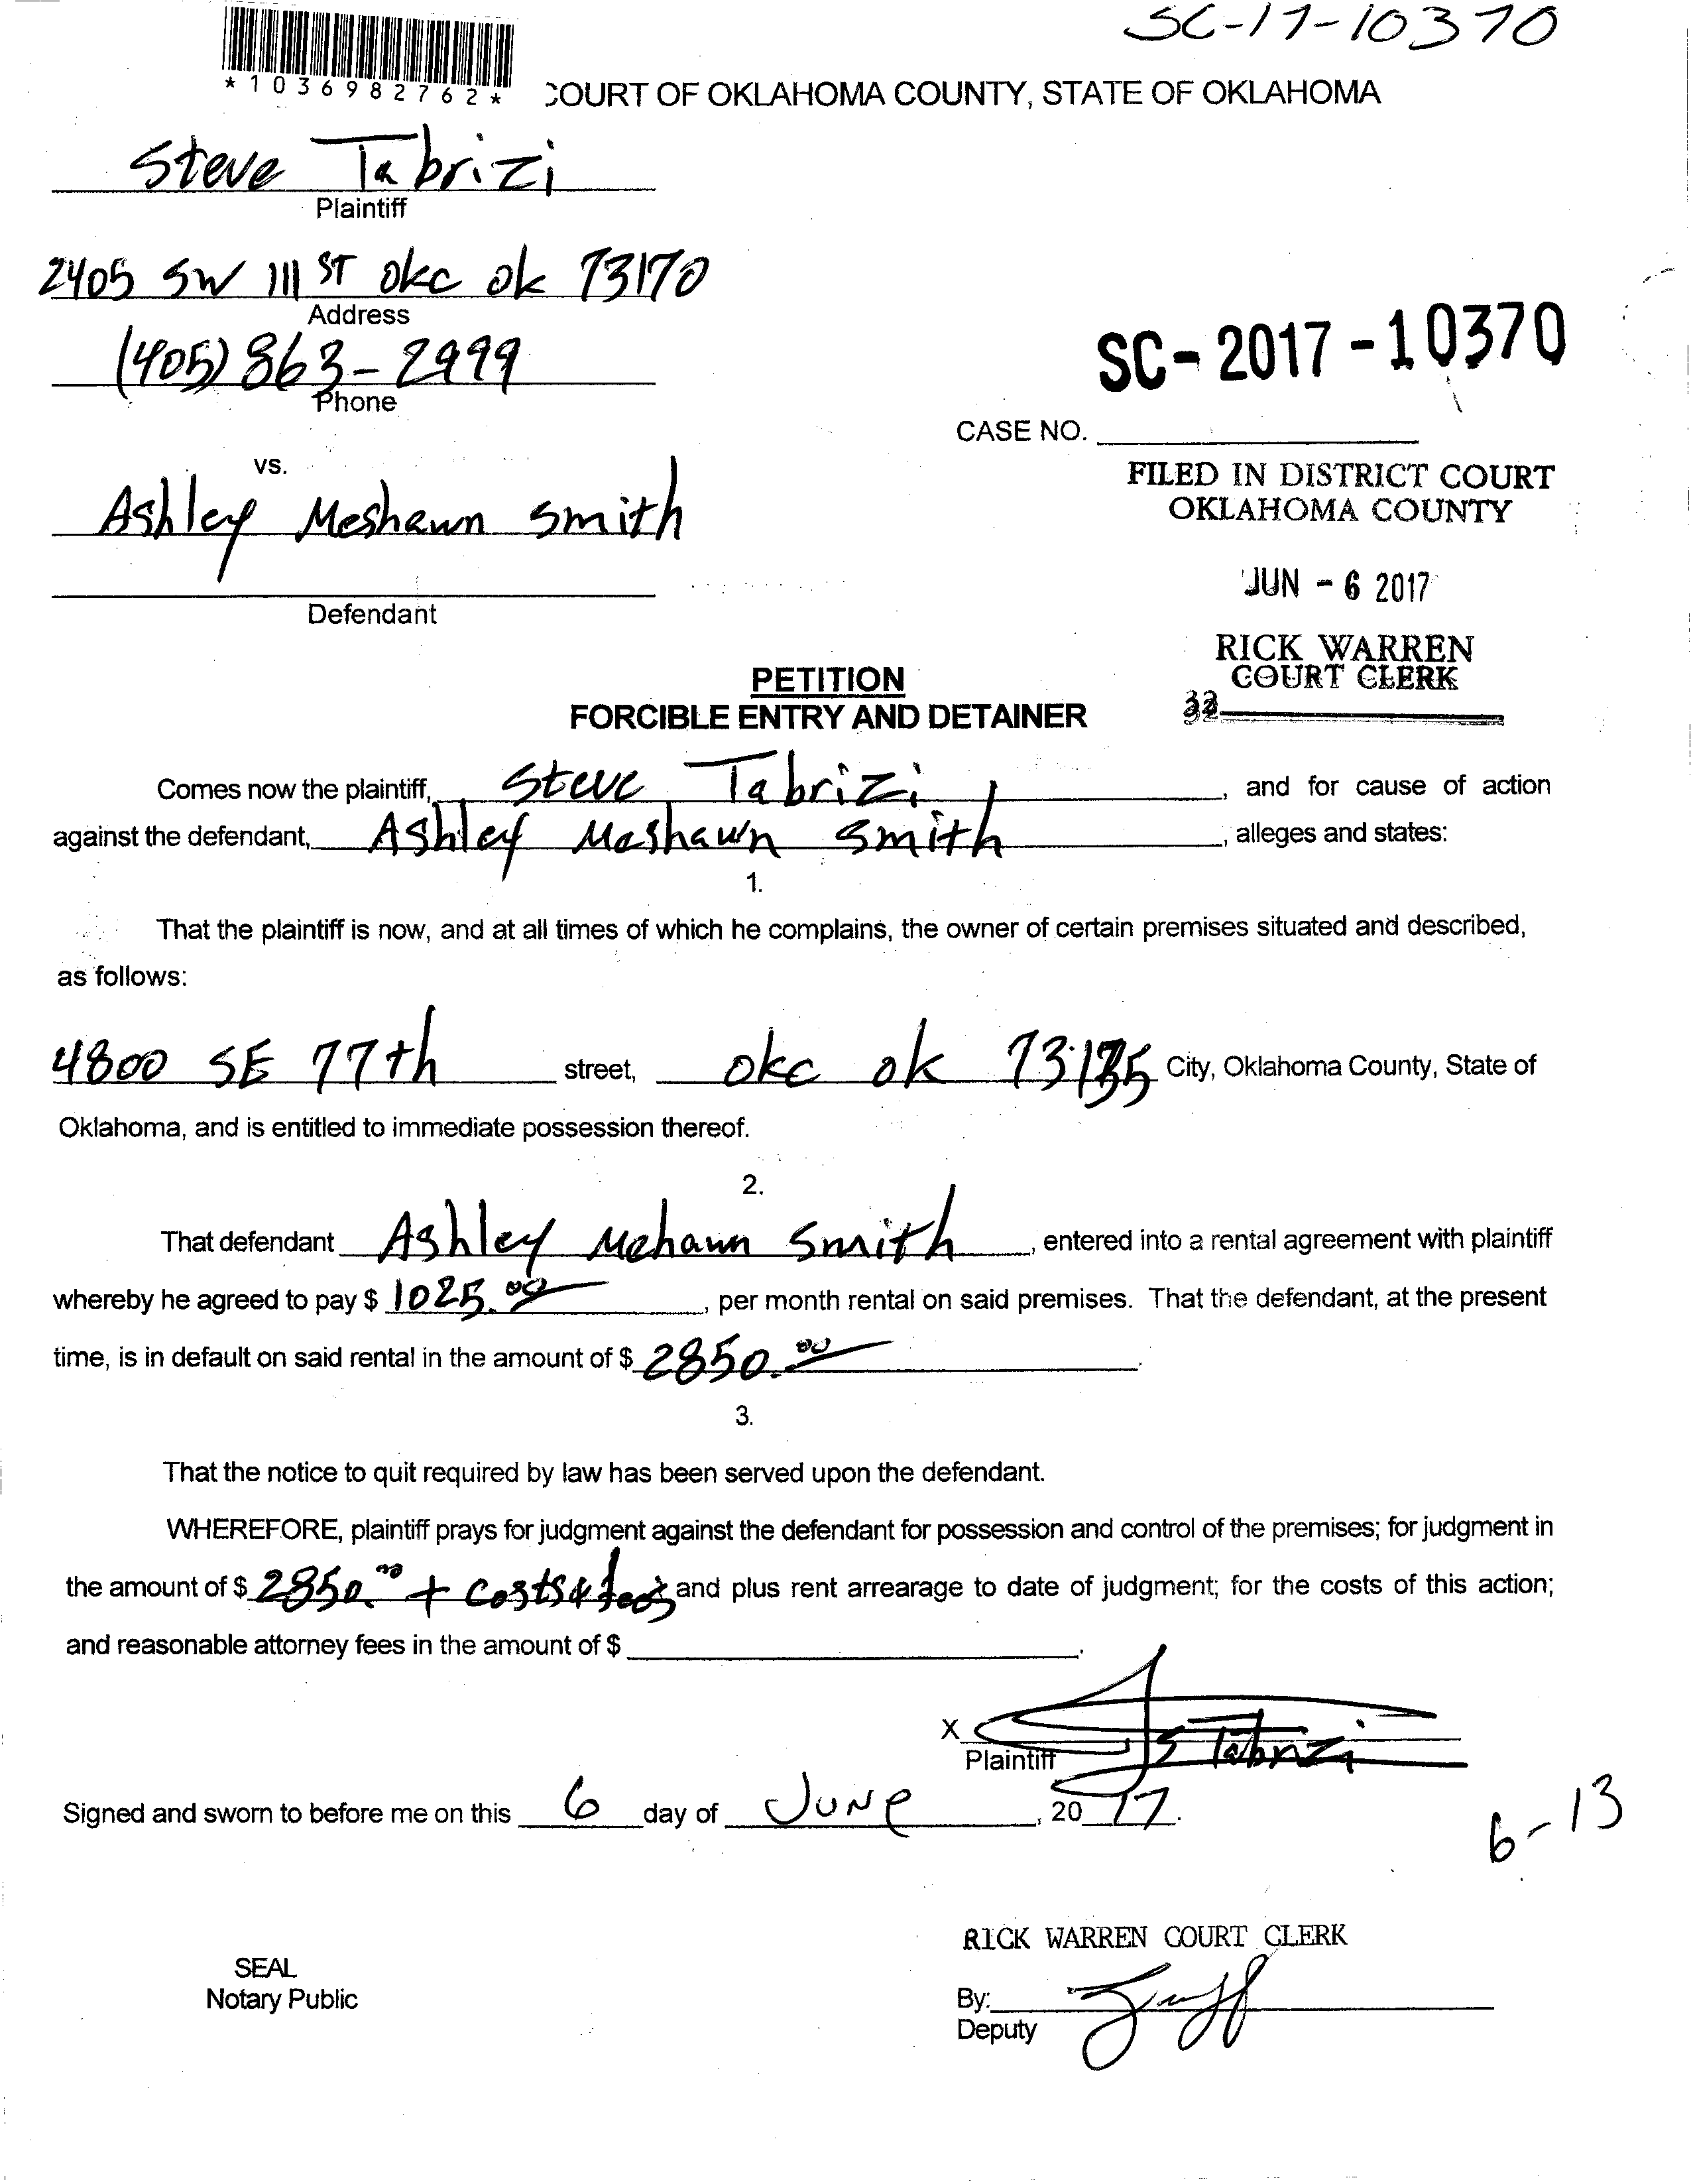 SC-17-10370
*1036982762*
COURT OF OKLAHOMA COUNTY, STATE OF OKLAHOMA
Steve Tabrizi
Plaintiff
2405 SW 111 ST okc ok 73170
Address
(405) 863-2999
Phone
SC-2017-10370
CASE NO.
vs.
FILED IN DISTRICT COURT
OKLAHOMA COUNTY
Ashley Meshawn Smith
JUN - 6 2017
Defendant
RICK WARREN
COURT CLERK
32
PETITION
FORCIBLE ENTRY AND DETAINER
Comes now the plaintiff, Steve Tabrizi, and for cause of action
against the defendant, Ashley Meshawn Smith, alleges and states:
1.
That the plaintiff is now, and at all times of which he complains, the owner of certain premises situated and described,
as follows:
4800 SE 77th street, okc ok 73135 City, Oklahoma County, State of
Oklahoma, and is entitled to immediate possession thereof.
2.
That defendant Ashley Mehawn Smith, entered into a rental agreement with plaintiff
whereby he agreed to pay $ 1025.00, per month rental on said premises. That the defendant, at the present
time, is in default on said rental in the amount of $ 2850.00.
3.
That the notice to quit required by law has been served upon the defendant.
WHEREFORE, plaintiff prays for judgment against the defendant for possession and control of the premises; for judgment in
the amount of $ 2850.00 + costs & fees and plus rent arrearage to date of judgment; for the costs of this action;
and reasonable attorney fees in the amount of $ .
X S Tabrizi
Plaintiff
Signed and sworn to before me on this 6 day of June, 2017.
6-13
RICK WARREN COURT CLERK
SEAL
Notary Public
By:
Deputy